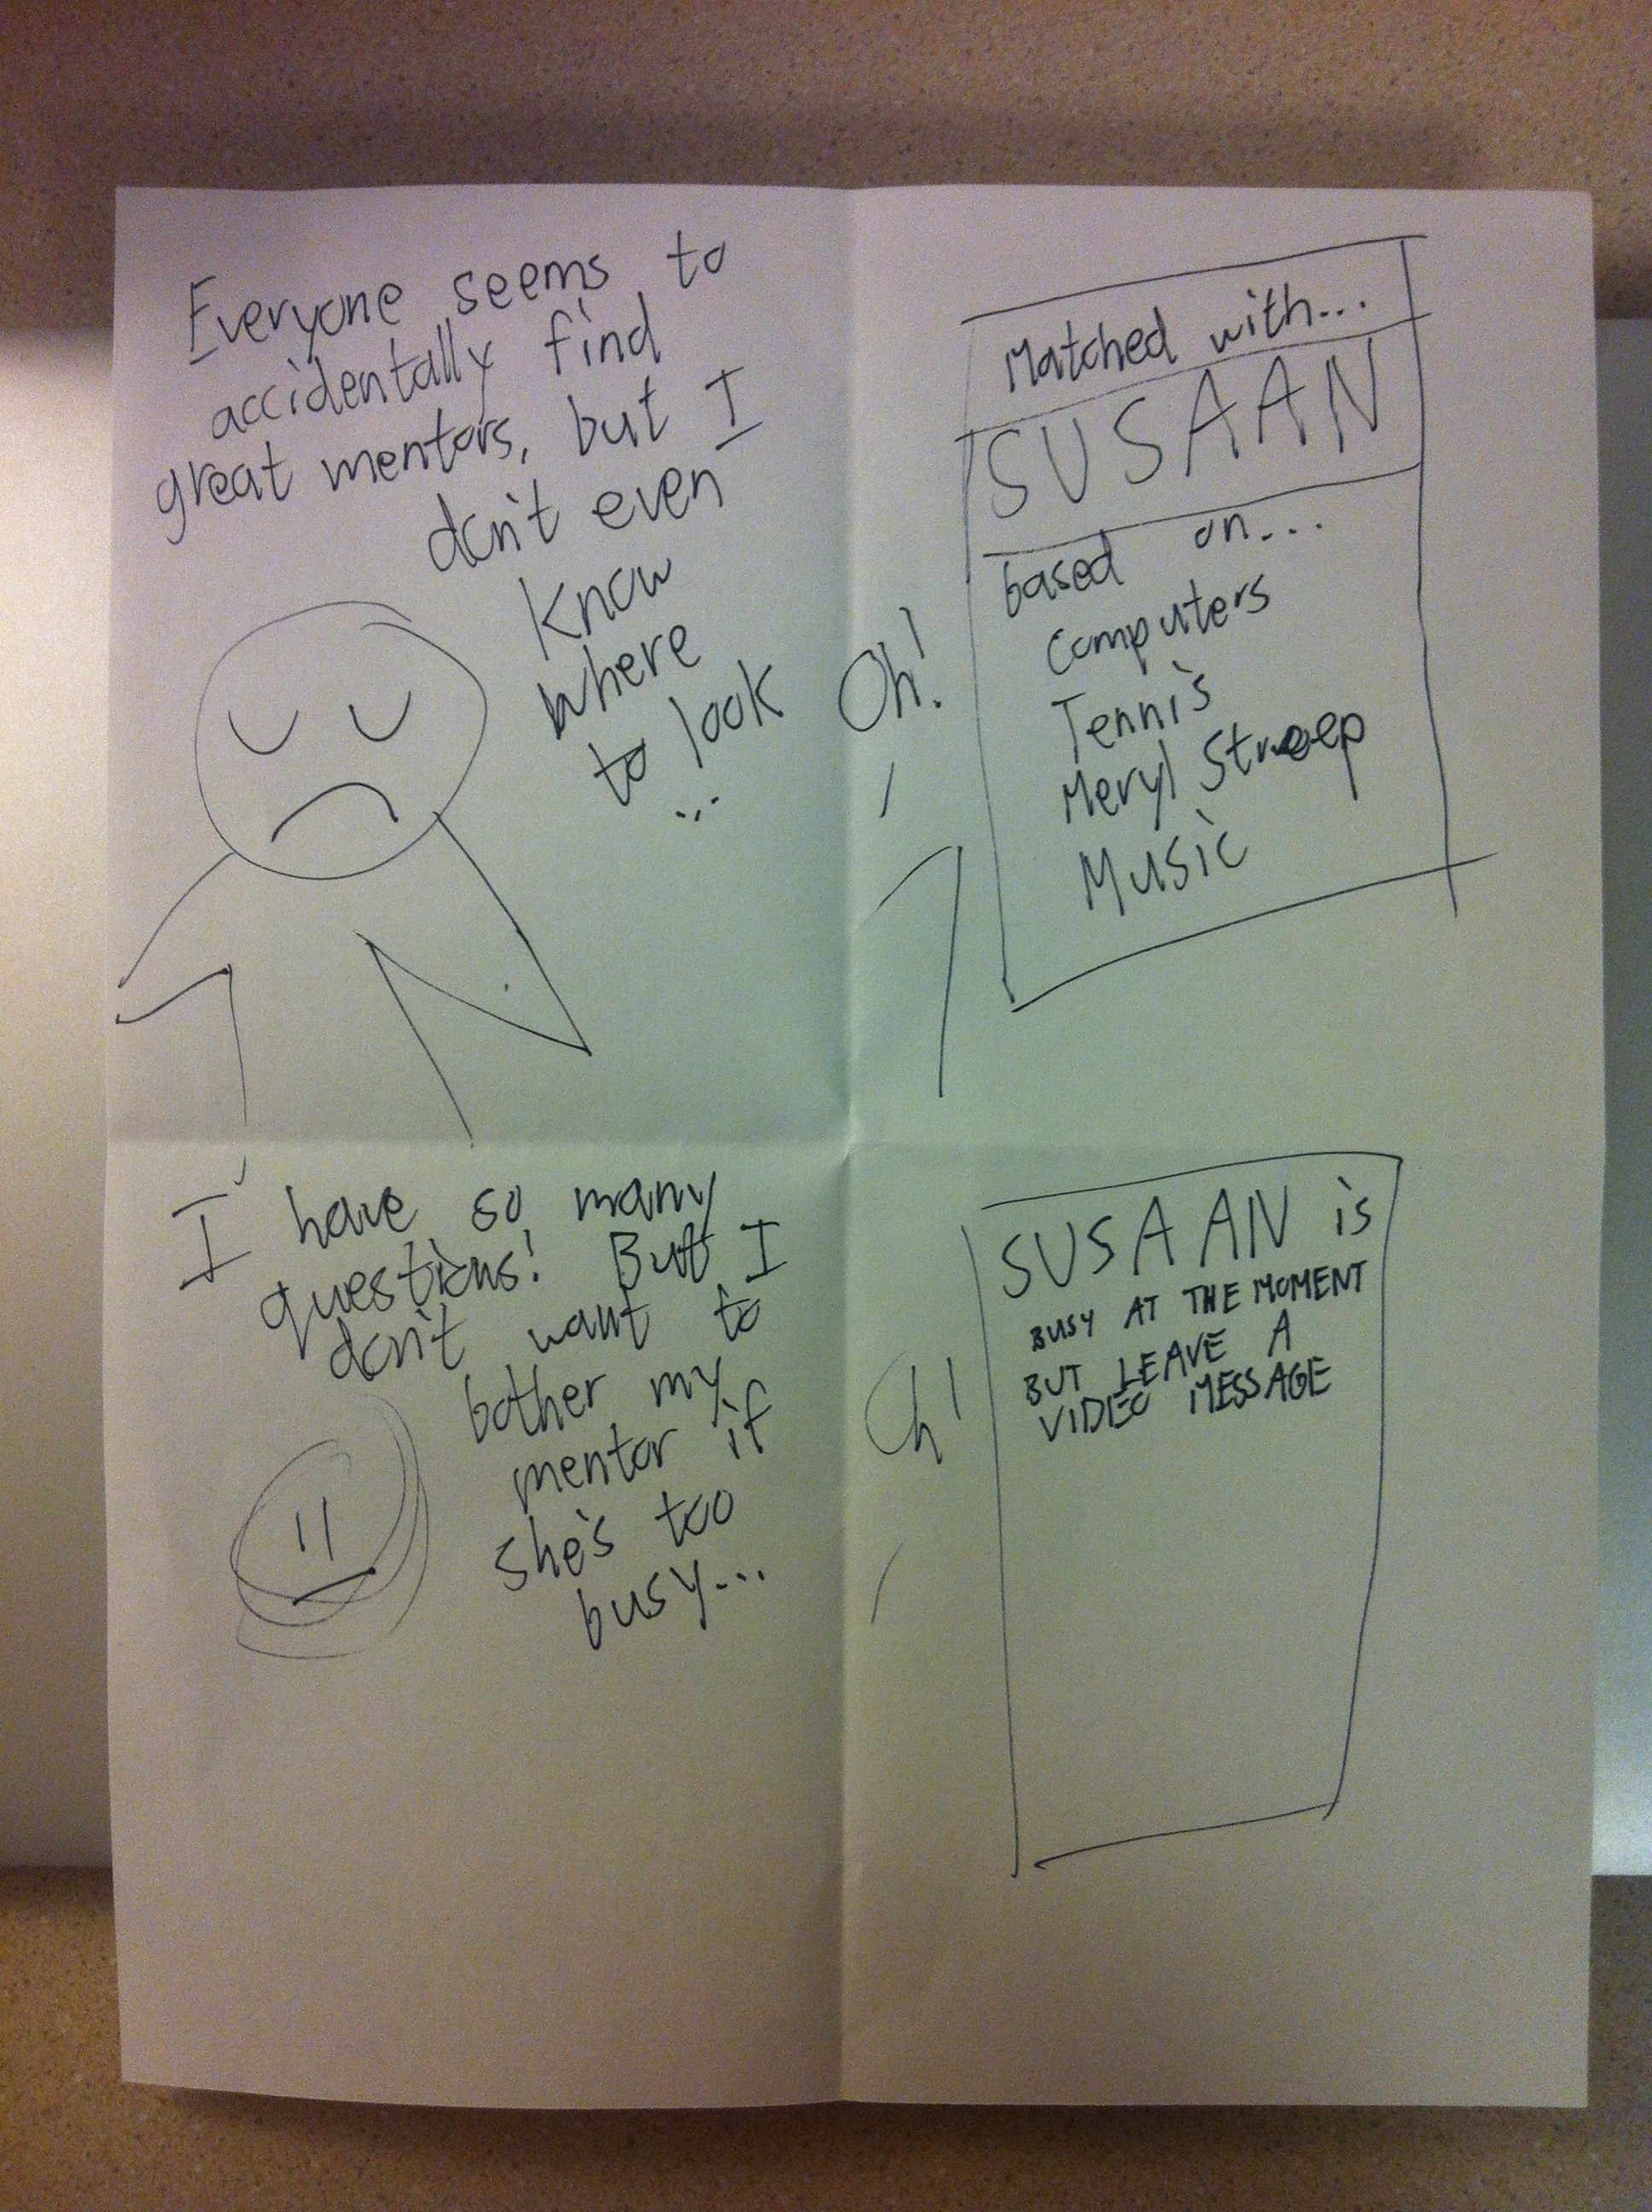 Everyone seems to
accidentally find
great mentors, but I
don't even
know
where
to look
...
Oh!
Matched with...
SUSAAN
based on...
Computers
Tennis
Meryl Streep
Music
I have so many
questions! But I
don't want to
bother my
mentor if
she's too
busy...
Oh!
SUSAAN is
BUSY AT THE MOMENT
BUT LEAVE A
VIDEO MESSAGE